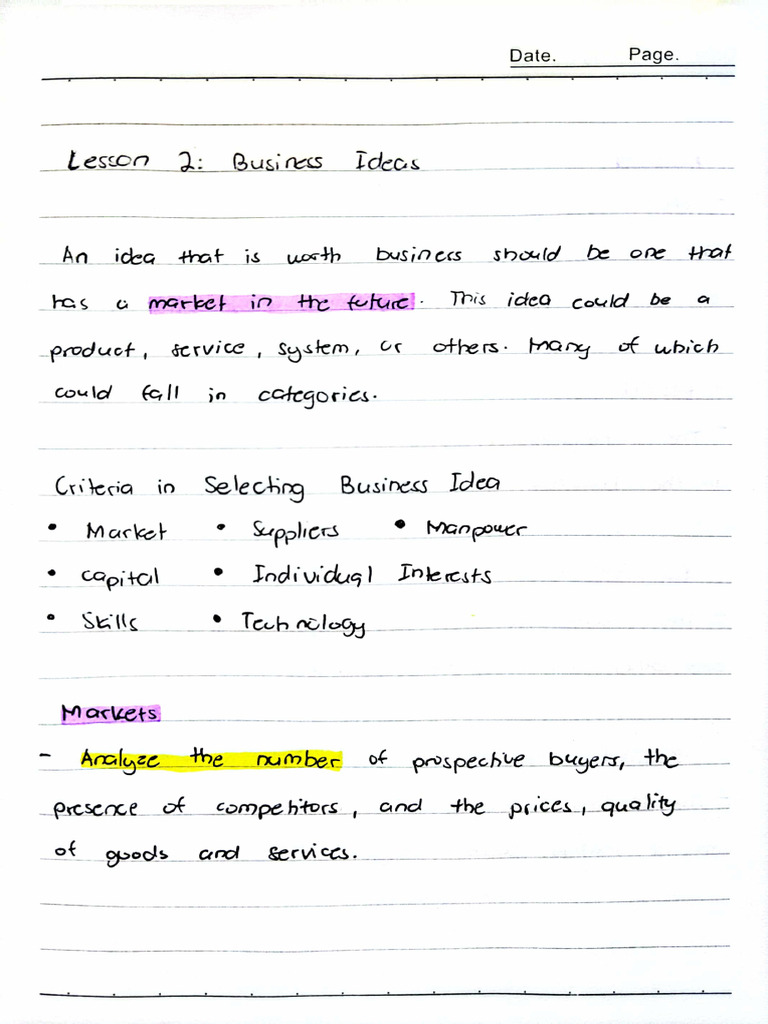 Date. Page.
Lesson 2: Business Ideas
An idea that is worth business should be one that
has a market in the future. This idea could be a
product, service, system, or others. Many of which
could fall in categories.
Criteria in Selecting Business Idea
• Market • Suppliers • Manpower
• capital • Individual Interests
• Skills • Technology
Markets
- Analyze the number of prospective buyers, the
presence of competitors, and the prices, quality
of goods and services.